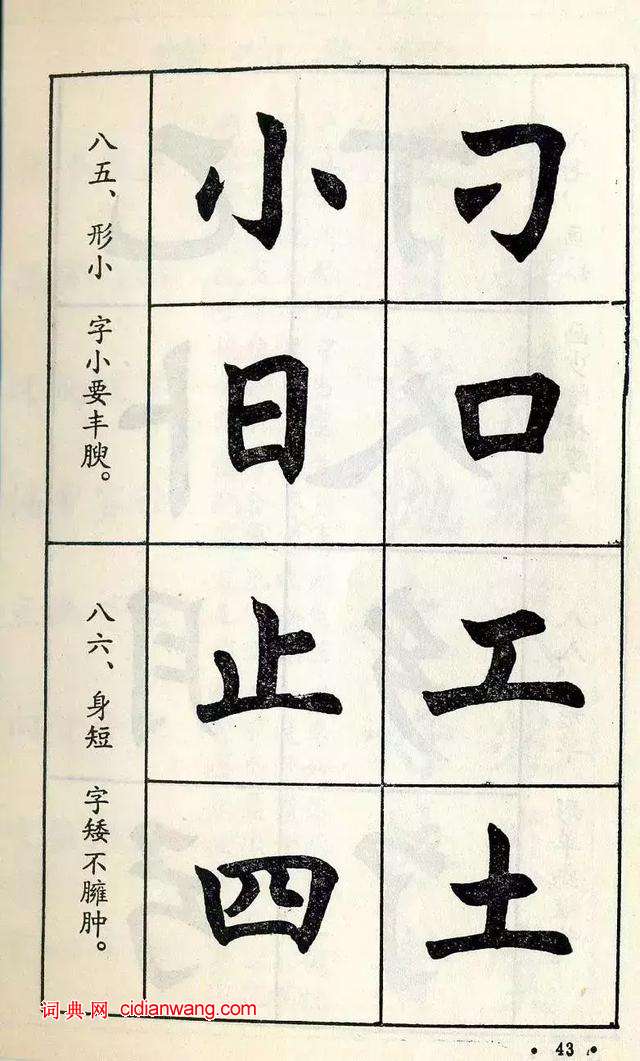 刁口
小日
八五、形小 字小要丰腴。
工土
止四
八六、身短 字矮不臃肿。
词典网 cidianwang.com
• 43 •